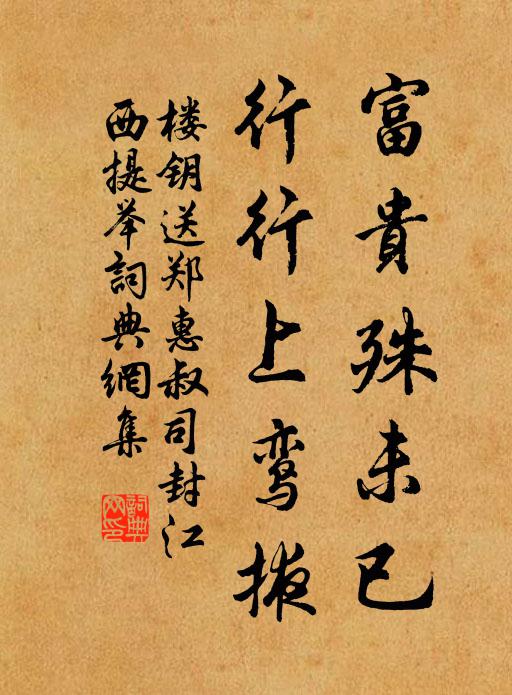 富貴殊未已
行行上鸾掖
楼钥送郑惠叔司封江
西提举詞典網集
詞典
网印